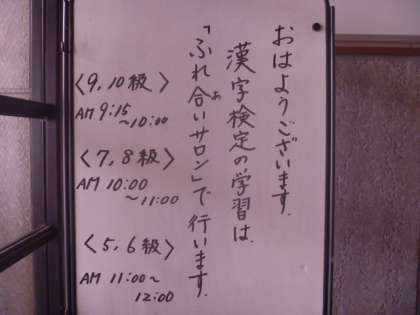 おはようございます.
漢字検定の学習は.
「ふれ合いサロン」で行います.
あ
〈9,10級〉
AM 9:15
~10:00
〈7,8級〉
AM 10:00
~11:00
〈5,6級〉
AM 11:00~
12:00